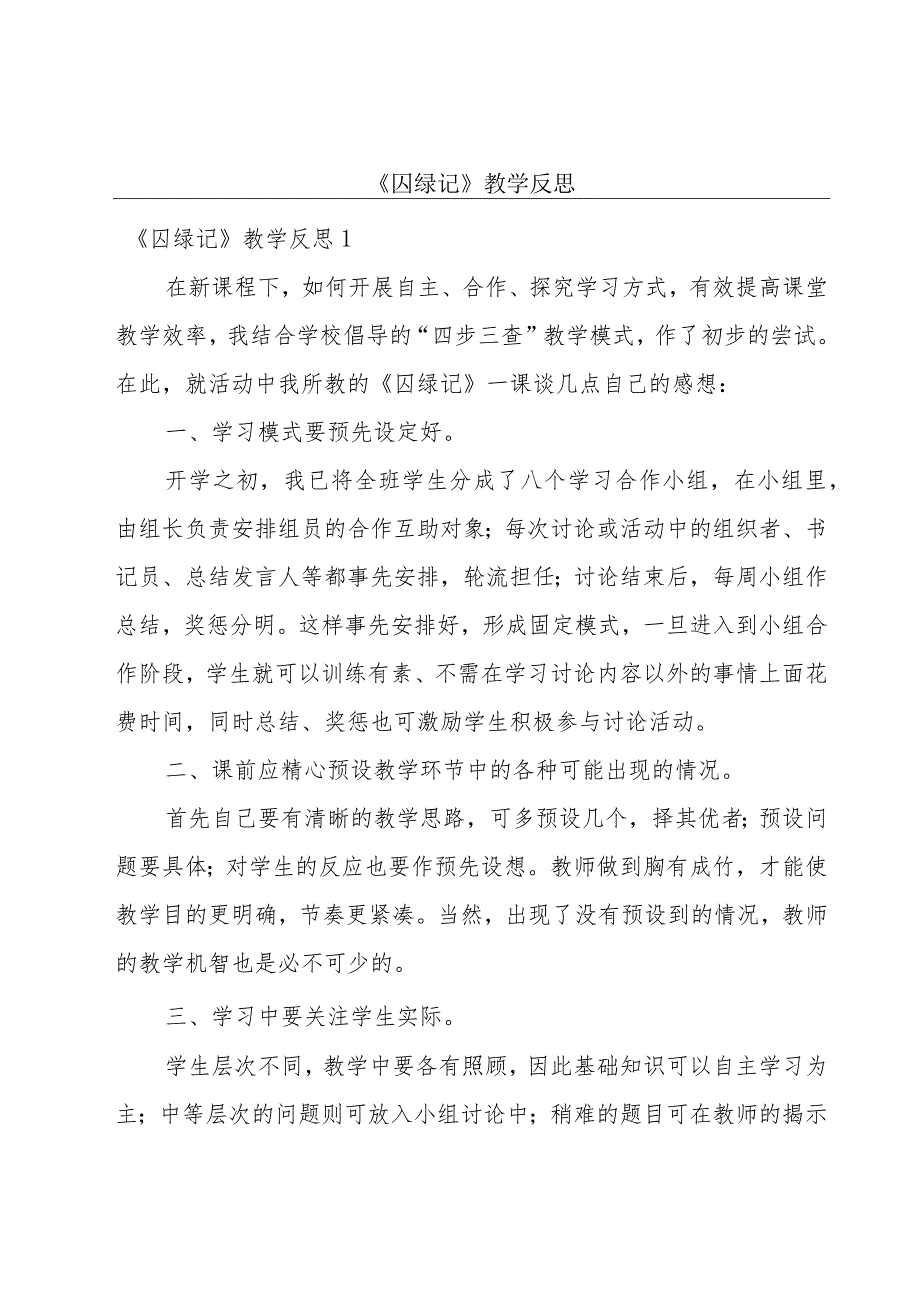 《囚绿记》教学反思
《囚绿记》教学反思1
在新课程下，如何开展自主、合作、探究学习方式，有效提高课堂
教学效率，我结合学校倡导的“四步三查”教学模式，作了初步的尝试。
在此，就活动中我所教的《囚绿记》一课谈几点自己的感想：
一、学习模式要预先设定好。
开学之初，我已将全班学生分成了八个学习合作小组，在小组里，
由组长负责安排组员的合作互助对象；每次讨论或活动中的组织者、书
记员、总结发言人等都事先安排，轮流担任；讨论结束后，每周小组作
总结，奖惩分明。这样事先安排好，形成固定模式，一旦进入到小组合
作阶段，学生就可以训练有素、不需在学习讨论内容以外的事情上面花
费时间，同时总结、奖惩也可激励学生积极参与讨论活动。
二、课前应精心预设教学环节中的各种可能出现的情况。
首先自己要有清晰的教学思路，可多预设几个，择其优者；预设问
题要具体；对学生的反应也要作预先设想。教师做到胸有成竹，才能使
教学目的更明确，节奏更紧凑。当然，出现了没有预设到的情况，教师
的教学机智也是必不可少的。
三、学习中要关注学生实际。
学生层次不同，教学中要各有照顾，因此基础知识可以自主学习为
主；中等层次的问题则可放入小组讨论中；稍难的题目可在教师的揭示